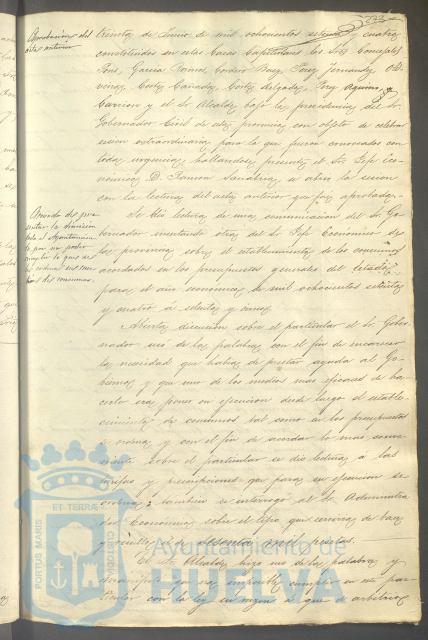 Aprobación del
acta anterior
treinta de Junio de mil ochocientos setenta y cuatro
constituidos en estas Casas Capitulares los Sres Concejales
Pons, Garcia Ramos, Cordero Ruiz, Perez Fernandez,
Cortes Cañada, Cortes Delgado,
Carrion y el Sr. Alcalde bajo la presidencia del Sr.
Gobernador Civil de esta provincia con objeto de celebrar
sesion extraordinaria para la que fueron convocados con
toda urgencia, hallandose presente el Sr. Jefe Eco-
nómico D. Ramon Sanabria, se abrio la sesion
con la lectura del acta anterior que fué aprobada.
Se dió lectura de una comunicacion del Sr. Go-
bernador insertando otra del Sr. Jefe Economico de
la provincia sobre el establecimiento de los consumos
acordados en los presupuestos generales del Estado
para el año económico de mil ochocientos setenta
y cuatro á setenta y cinco.
Acuerdo de pre-
sentar la dimision
todo el Ayuntamien-
to por no poder
cumplir lo que se
le ordena sus
de consumos.
Abierta discusion sobre el particular el Sr. Gober-
nador usó de la palabra con el fin de encarecer
la necesidad que habia de prestar ayuda al Go-
bierno y que uno de los medios mas eficaces de ha-
cerlo era poner en ejecucion desde luego el estable-
cimiento de consumos tal como en los presupuestos
se ordena y con el fin de acordar lo mas conve-
niente sobre el particular se dió lectura á las
tarifas y prescripciones que para su ejecucion se
ordena; tambien se interrogó al Sr. Administra-
dor Económico sobre el tipo que serviria de base
y resultó de sesenta mil pesetas.
El Sr. Alcalde hizo uso de la palabra y
manifestó que era imposible cumplir en este par-
ticular con la ley en razon á que se arbitrios
ET TERRÆ
PORTUS MARIS
CUSTODIA
Ayuntamiento de
HUELVA